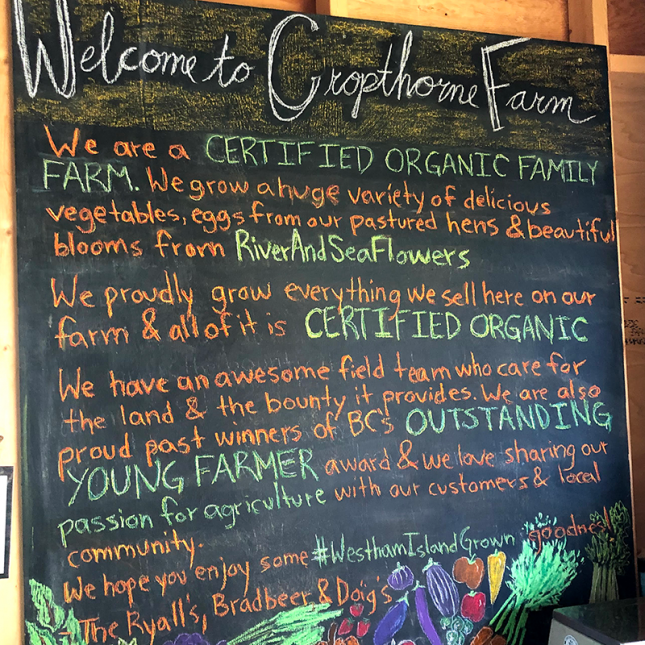 Welcome to Cropthorne Farm
We are a CERTIFIED ORGANIC FAMILY
FARM. We grow a huge variety of delicious
vegetables, eggs from our pastured hens & beautiful
blooms from RiverAndSeaFlowers
We proudly grow everything we sell here on our
farm & all of it is CERTIFIED ORGANIC
We have an awesome field team who care for
the land & the bounty it provides. We are also
proud past winners of BC's OUTSTANDING
YOUNG FARMER award & we love sharing our
passion for agriculture with our customers & local
community.
We hope you enjoy some #WesthamIslandGrown goodness!
- The Ryall's, Bradbeer & Doig's